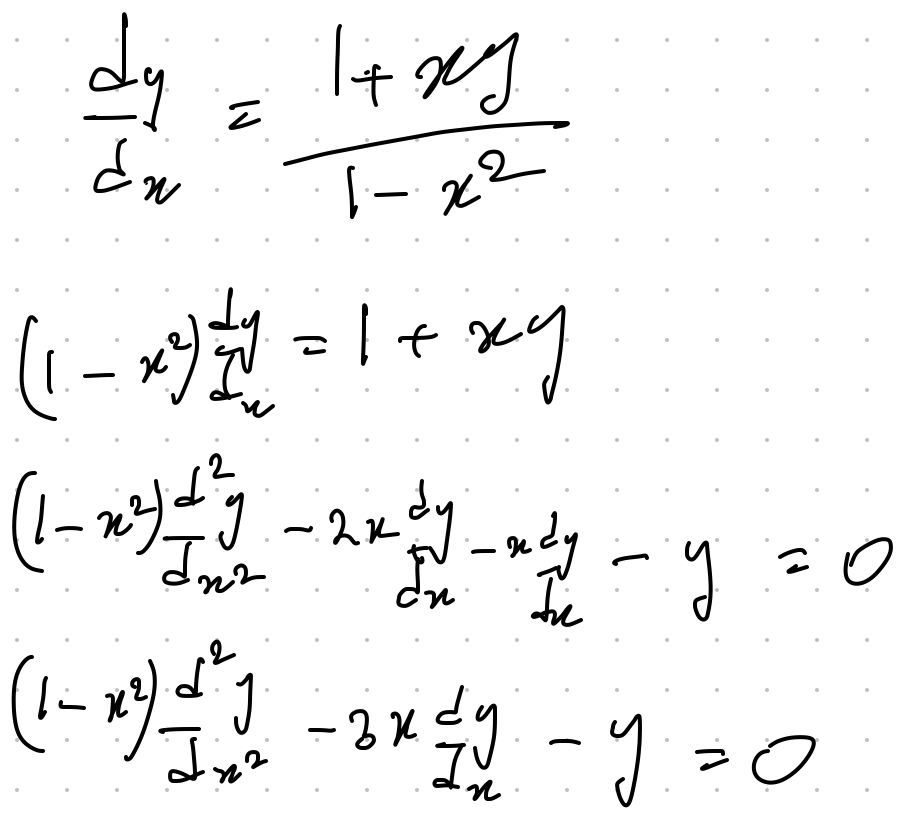 dy/dx = (1 + xy)/(1 - x²)
(1 - x²) dy/dx = 1 + xy
(1 - x²) d²y/dx² - 2x dy/dx - x dy/dx - y = 0
(1 - x²) d²y/dx² - 3x dy/dx - y = 0